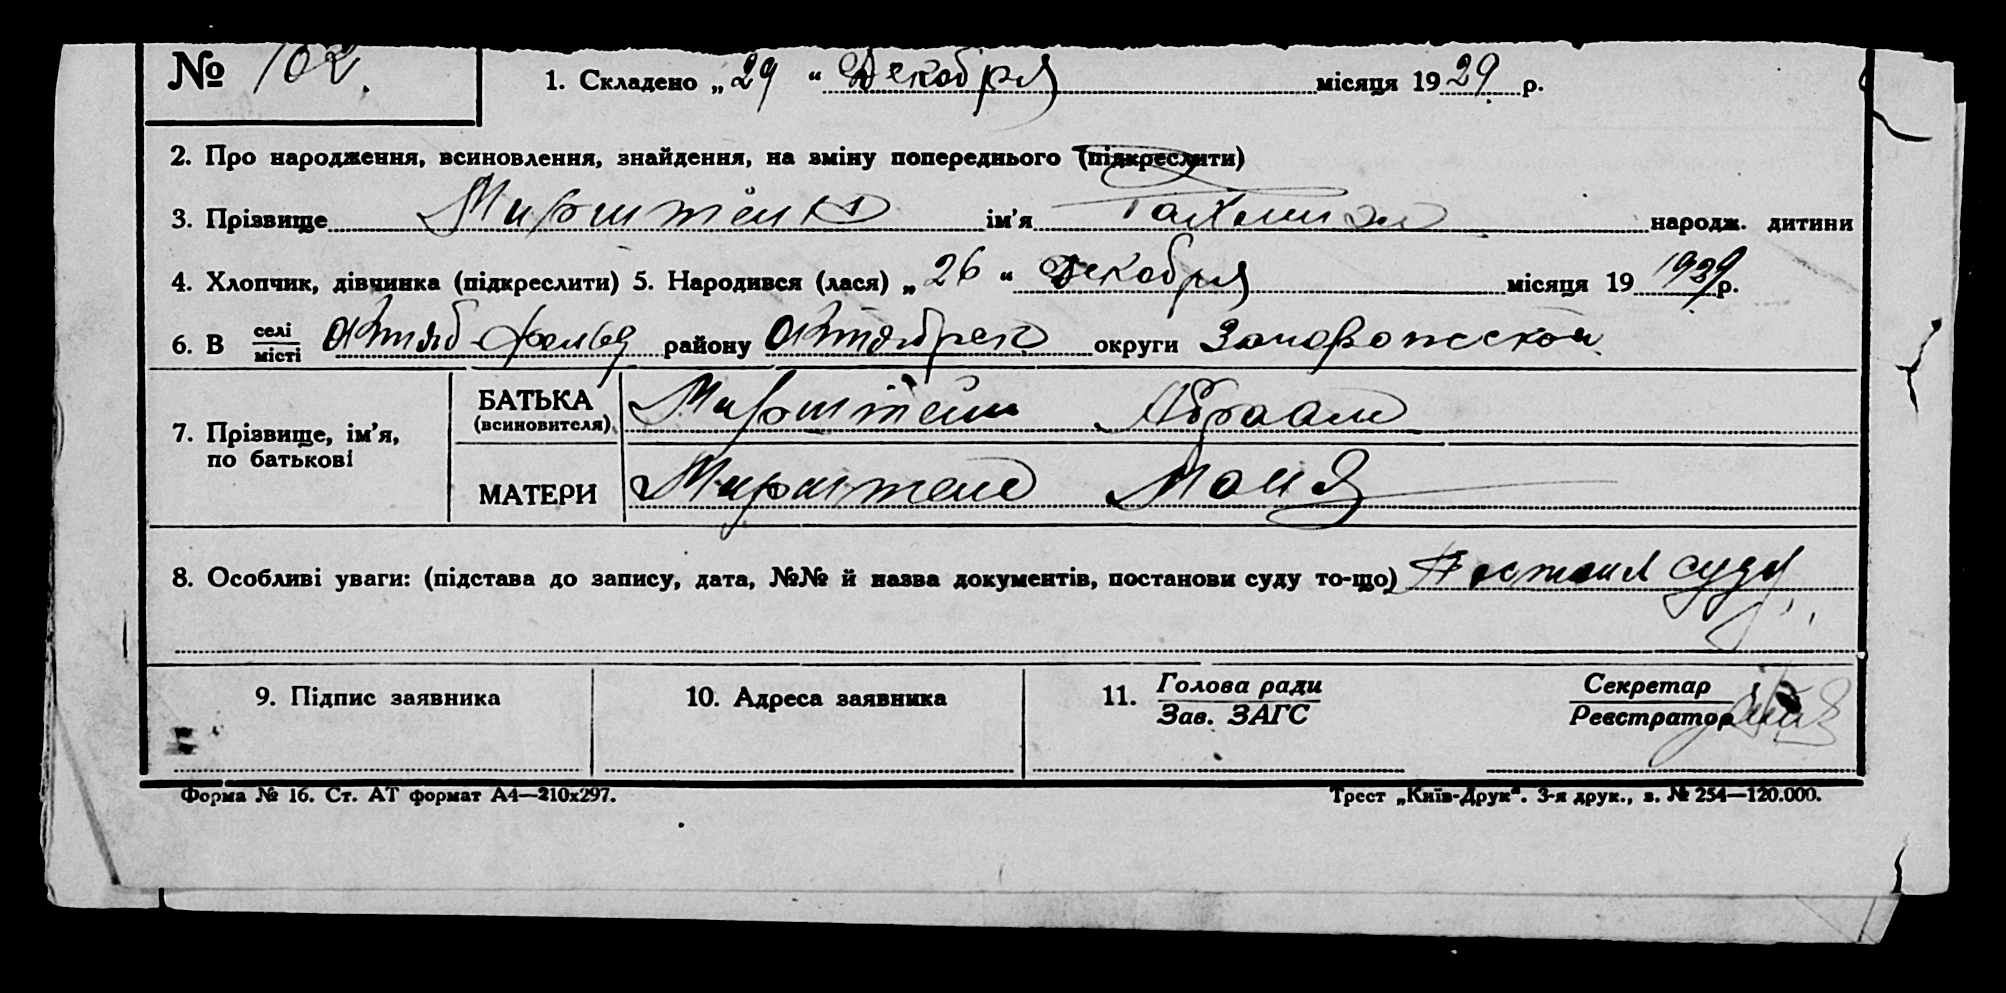 № 102. 1. Складено „29“ Декобря місяця 1929 р.
2. Про народження, всиновлення, знайдення, на зміну попереднього (підкреслити)
3. Прізвище Мирштейн ім'я народж. дитини
4. Хлопчик, дівчинка (підкреслити) 5. Народився (лася) „26“ Декобря місяця 19 1929 р.
6. В селі місті Октяб району Октябрск округи Запорожской
7. Прізвище, ім'я, по батькові
БАТЬКА (всиновителя) Мирштейн Абраам
МАТЕРИ Мирштейн
8. Особливі уваги: (підстава до запису, дата, №№ й назва документів, постанови суду то-що) суду
9. Підпис заявника 10. Адреса заявника 11. Голова ради Секретар
Зав. ЗАГС Реєстратор
Форма № 16. Ст. АТ формат А4—210х297. Трест „Київ-Друк“. 3-я друк., з. № 254—120.000.